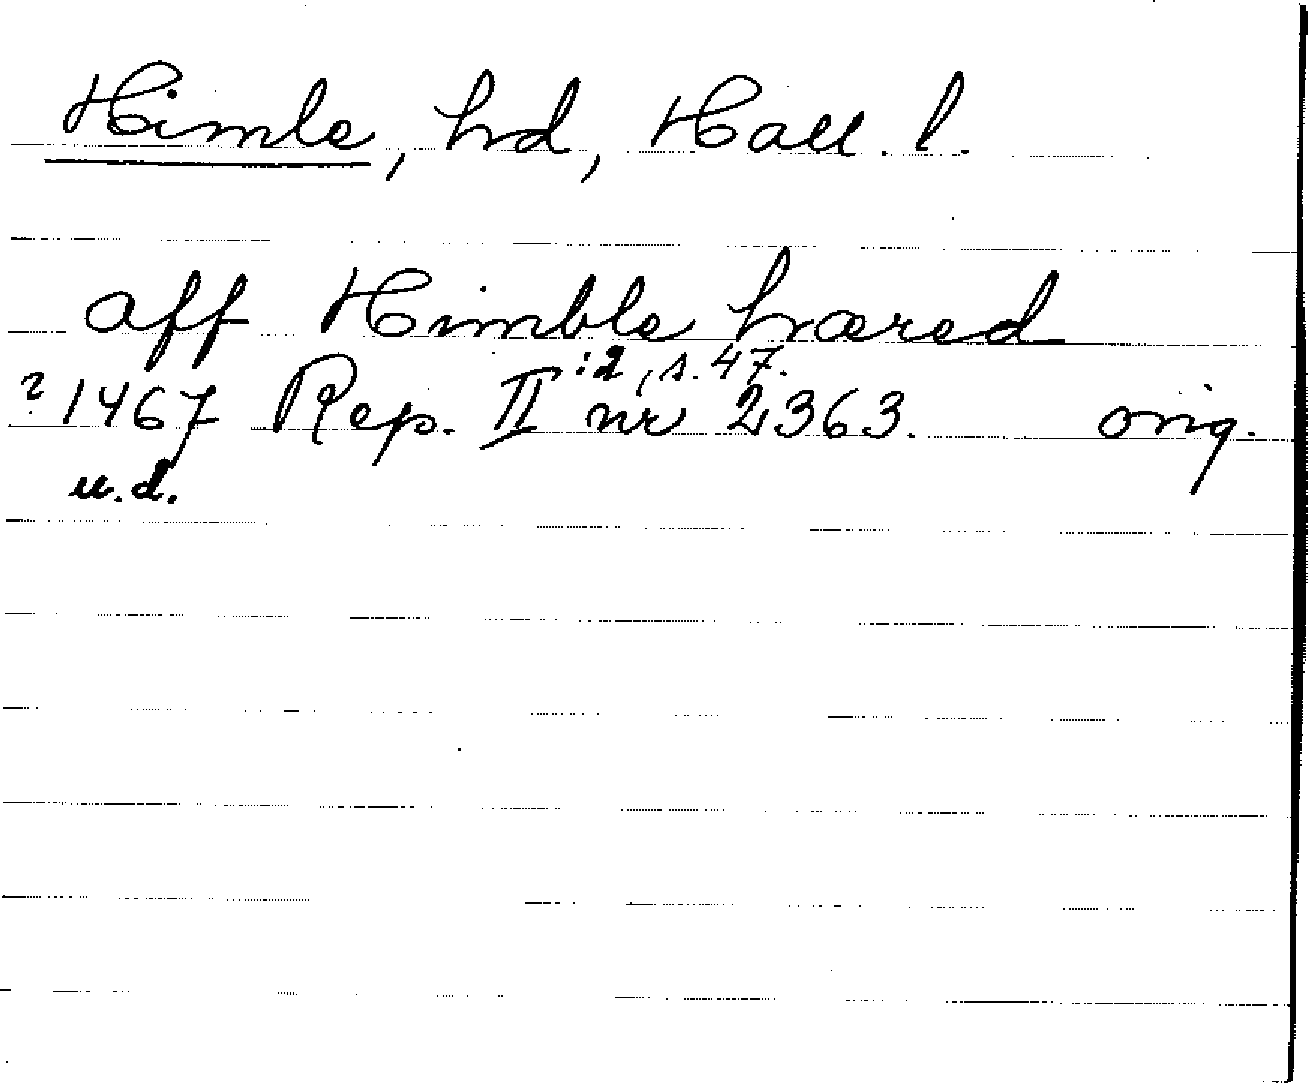 Himle, hd, Hall. l.
aff Himble hæred
? 1467 Rep. II :2, s. 47. nr 2363. orig.
u.d.